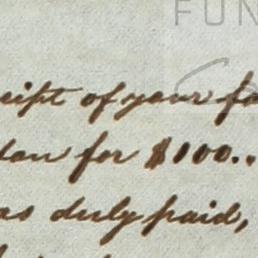 FUN
eipt of your fa
dau for $100..
as duly paid,